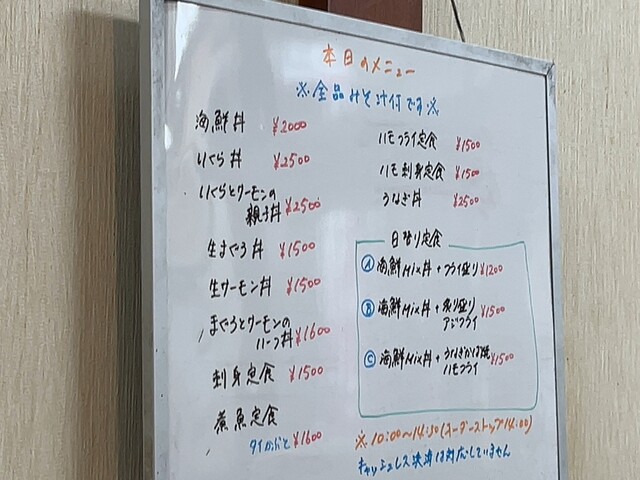 本日のメニュー
※全品みそ汁付です※
海鮮丼 ¥2000
いくら丼 ¥2500
いくらとサーモンの
親子丼 ¥2500
生まぐろ丼 ¥1500
生サーモン丼 ¥1500
まぐろとサーモンの
ハーフ丼 ¥1600
刺身定食 ¥1500
煮魚定食
タイかぶと ¥1600
ハモフライ定食 ¥1500
ハモ刺身定食 ¥1500
うなぎ丼 ¥2500
日替り定食
Ⓐ海鮮Mix丼+フライ盛り ¥1200
Ⓑ海鮮Mix丼+炙り盛り ¥1500
アジフライ
Ⓒ海鮮Mix丼+うなぎかば焼 ¥1500
ハモフライ
※10:00〜14:30(オーダーストップ14:00)
キャッシュレス決済は対応していません